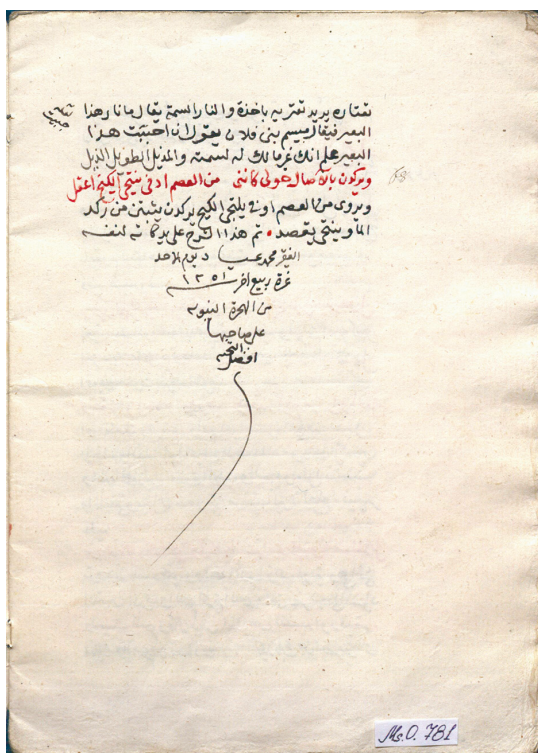 تعتاره يريد تعتريه ياخذه والنار السمة يقال ما نار هذا
البعير فيقال ميسم بنى فلان يقول ان احببت هذا
البعير علم انك غرمالك له لسمته والمذيل الطويل الذيل
ويركدن بالآصال حولى كاننى من العصم ادفى ينتحى الكيح اعقل
ويروى من العصم اوفى يلتجى الكيح يركدن يثبتن من ركد
الماء وينتحى يقصد • تم هذا الشرح على يد كاتبه لنفسه
الفقير محمد عياد يوم الاحد
غرة ربيع اخر ١٢٥١
من الهجرة النبويه
على صاحبها
افضل التحيه
Ms.O. 781